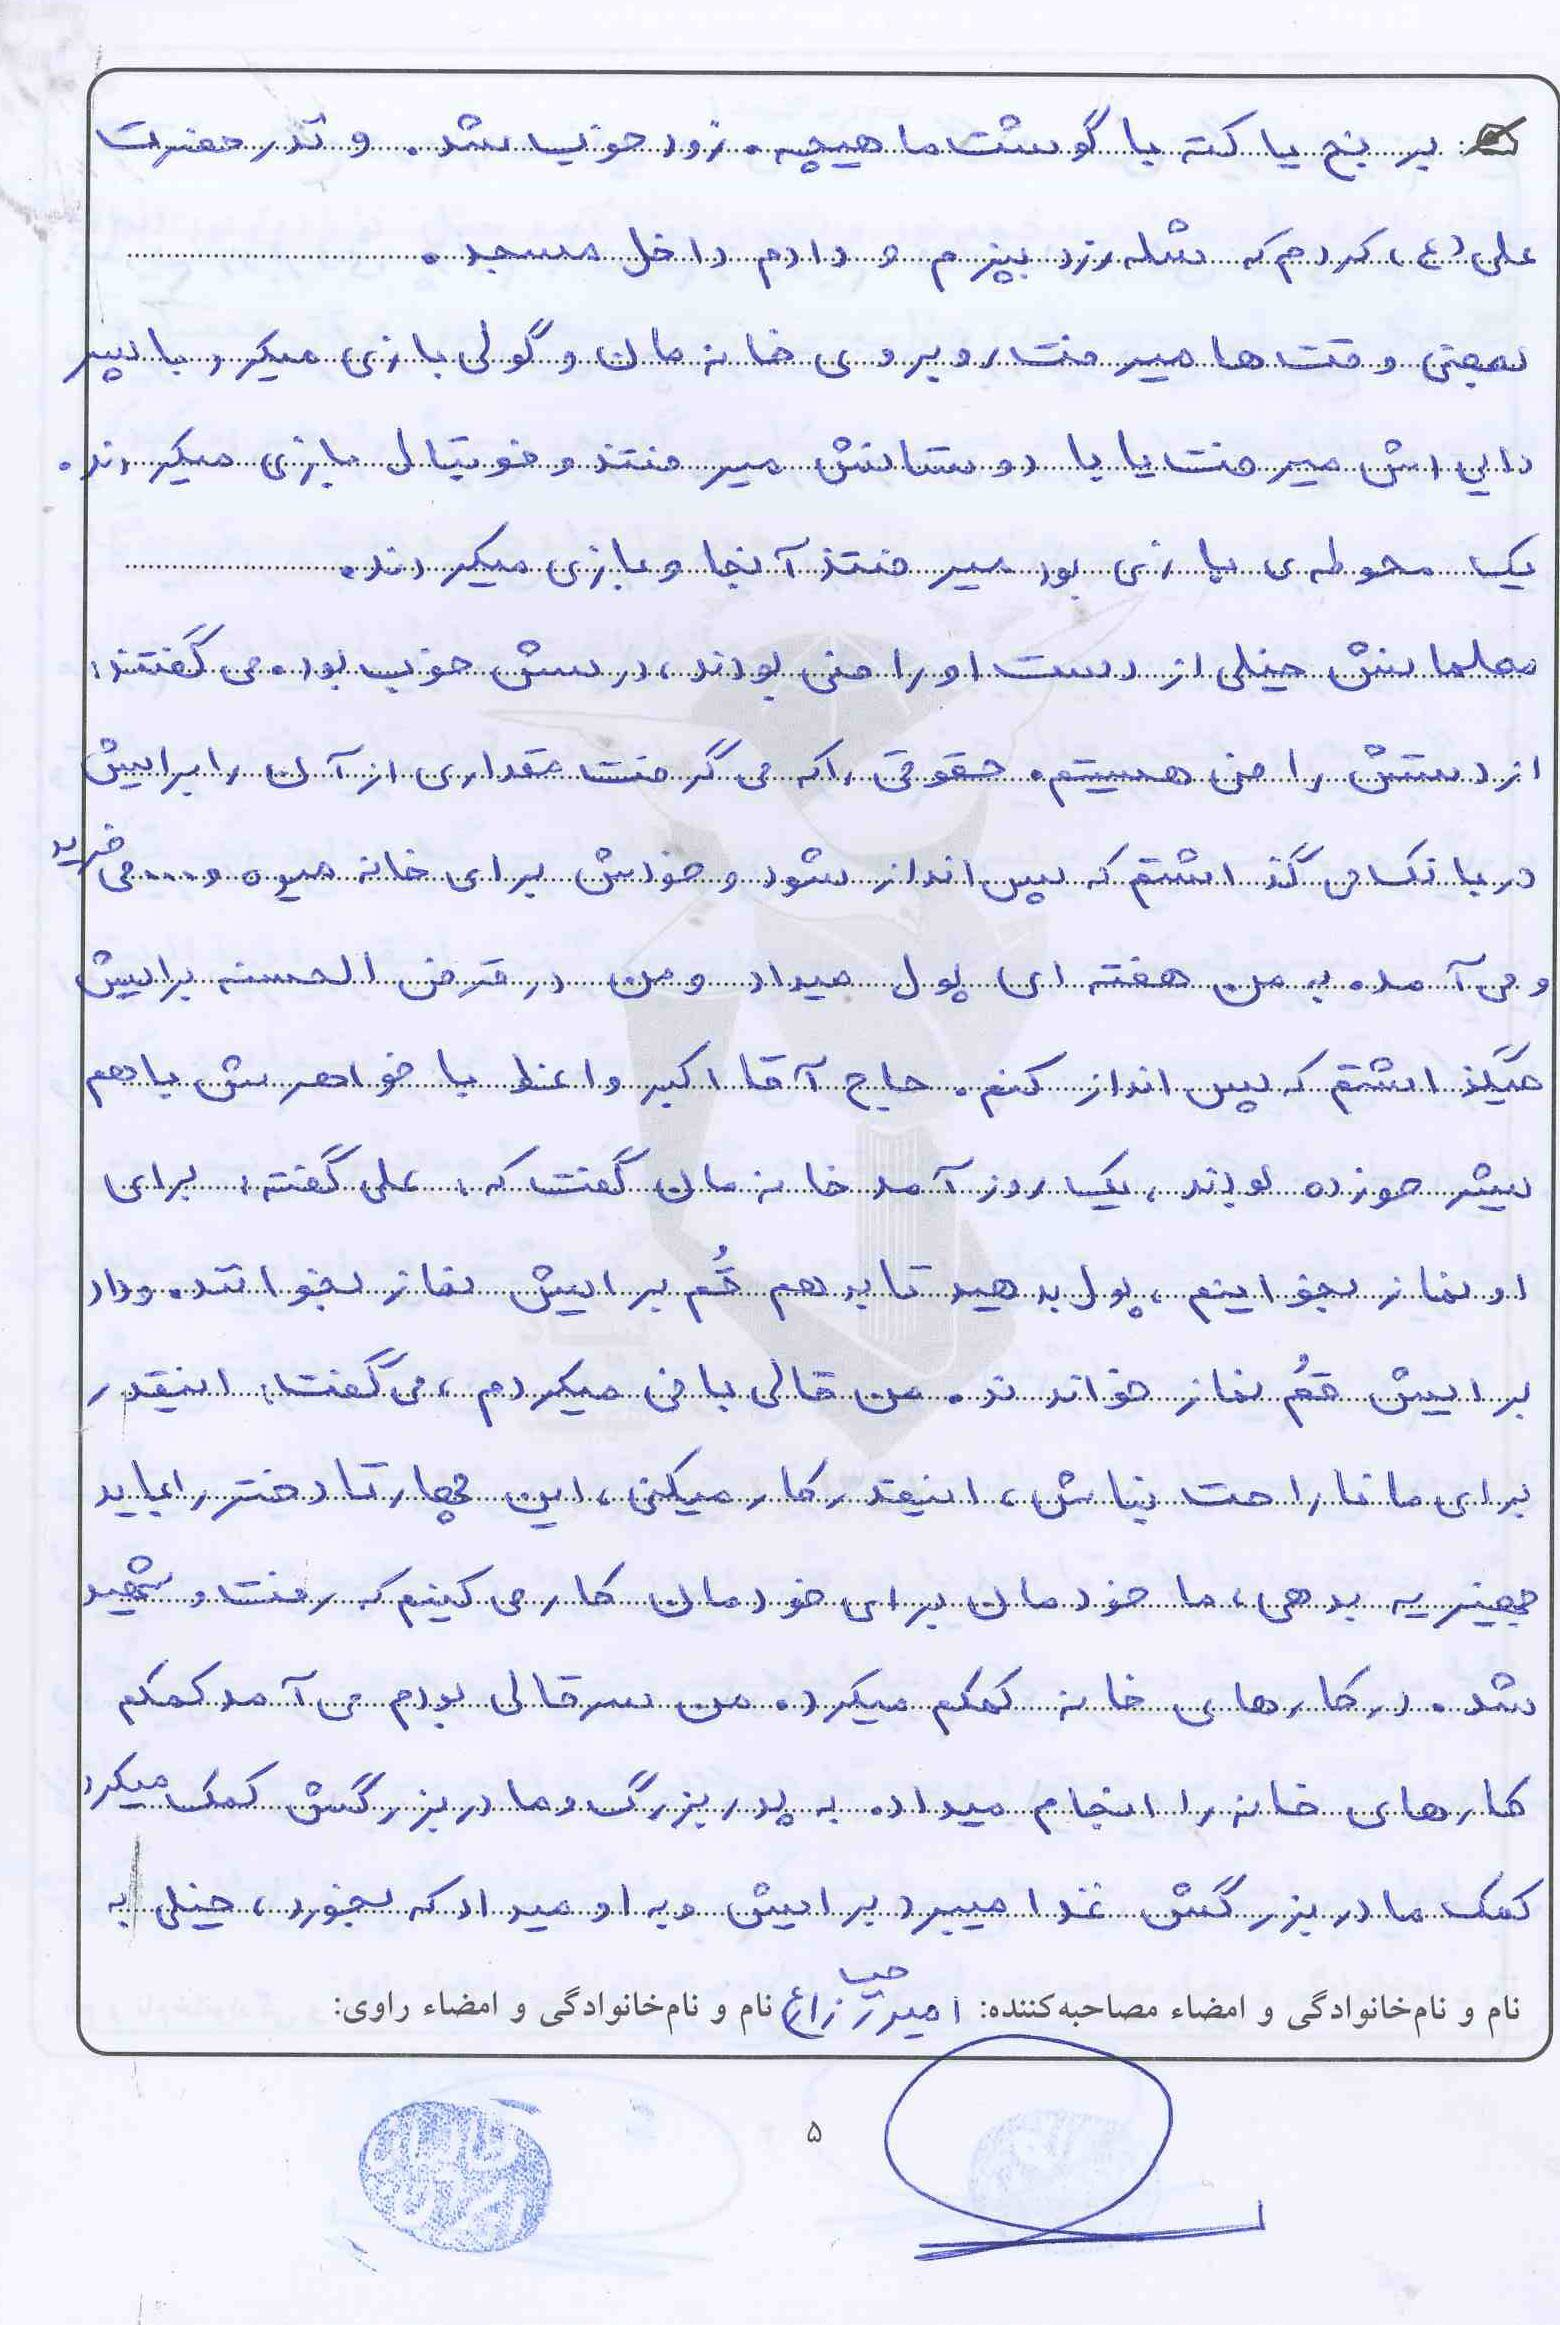 برنج یا کته با گوشت ماهیچه. زود خوب شد. و نذر حضرت
علی (ع) کردم که شله زرد بپزم و دادم داخل مسجد.
بعضی وقت ها میرفت روبروی خانه مان و گولی بازی میکرد با پسر
دایی اش میرفت یا با دوستانش میرفتند و فوتبال بازی میکردند.
یک محوطه ی بازی بود میرفتند آنجا و بازی میکردند.
معلمانش خیلی از دست او راضی بودند، درسش خوب بود. می گفتند:
از دستش راضی هستیم. حقوقی را که می گرفت مقداری از آن را برایش
در بانک می گذاشتم که پس انداز شود و خودش برای خانه میوه و... می خرید
و می آمد. به من هفته ای پول میداد و من در قرض الحسنه برایش
میگذاشتم که پس انداز کنم. حاج آقا اکبر واعظ با خواهرش با هم
شیر خورده بودند، یک روز آمد خانه مان گفت که: علی گفته: برای
او نماز بخوانیم، پول بدهید تا بدهم قُم برایش نماز بخوانند. و داد
برایش قُم نماز خواندند. من قالی بافی میکردم، می گفت: اینقدر
برای ما ناراحت نباش، اینقدر کار میکنی، این چهار تا دختر را باید
جهیزیه بدهی، ما خودمان برای خودمان کار می کنیم که رفت و شهید
شد. در کارهای خانه کمکم میکرد. من سر قالی بودم می آمد کمکم
کارهای خانه را انجام میداد. به پدر بزرگ و مادر بزرگش کمک میکرد
کمک مادر بزرگش غذا میبرد برایش و به او میداد که بخورد، خیلی به
نام و نام‌خانوادگی و امضاء مصاحبه‌کننده: امیر زارع نام و نام‌خانوادگی و امضاء راوی:
۵